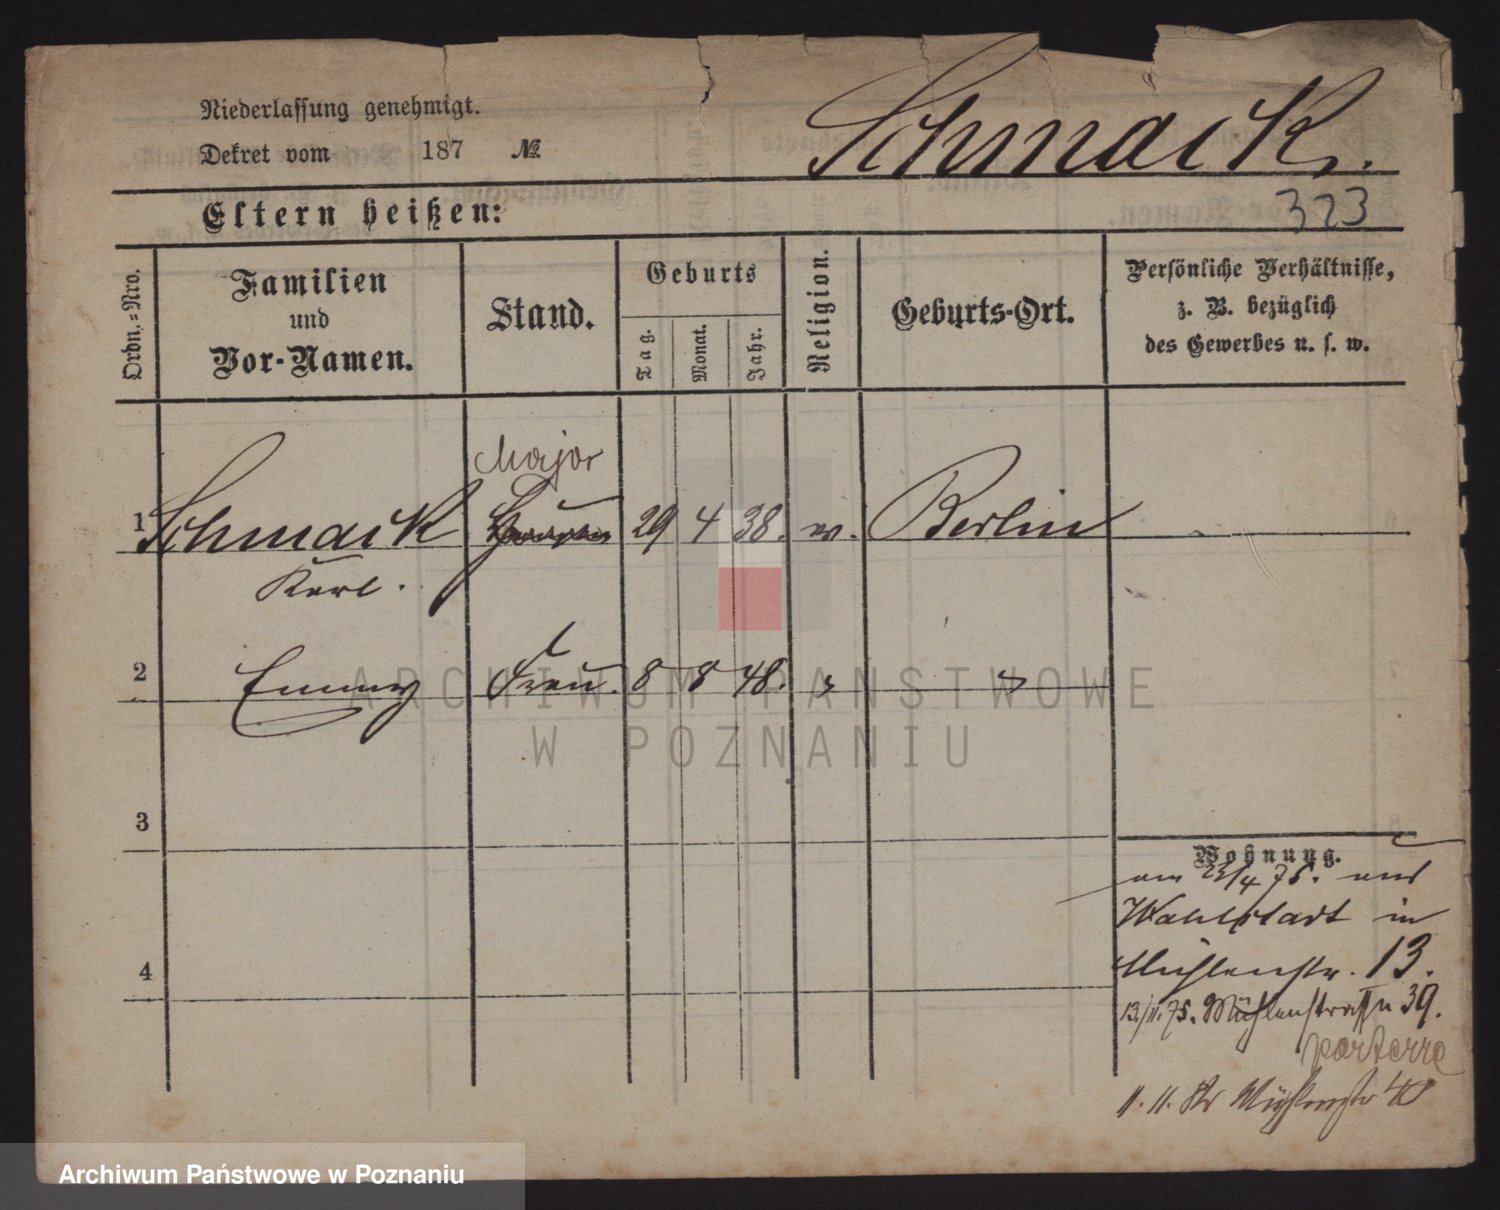 Niederlassung genehmigt.
Dekret vom 187 №
Schmack.
323
Eltern heißen:
Ordn.=Nro.
Familien
und
Vor-Namen.
Stand.
Geburts
Tag.
Monat.
Jahr.
Religion.
Geburts-Ort.
Persönliche Verhältnisse,
z. B. bezüglich
des Gewerbes u. s. w.
Major
1 Schmack 29 4 38. ev. Berlin
Karl.
2 Emmy Frau. 8 8 48.
3
4
Wohnung.
am 23/4 75. aus
Wahlstadt in
Mühlenstr. 13.
13./11. 75. Mühlenstraße 39.
parterre
11. 11. Mühlenstr 40
ARCHIWUM PAŃSTWOWE
W POZNANIU
Archiwum Państwowe w Poznaniu